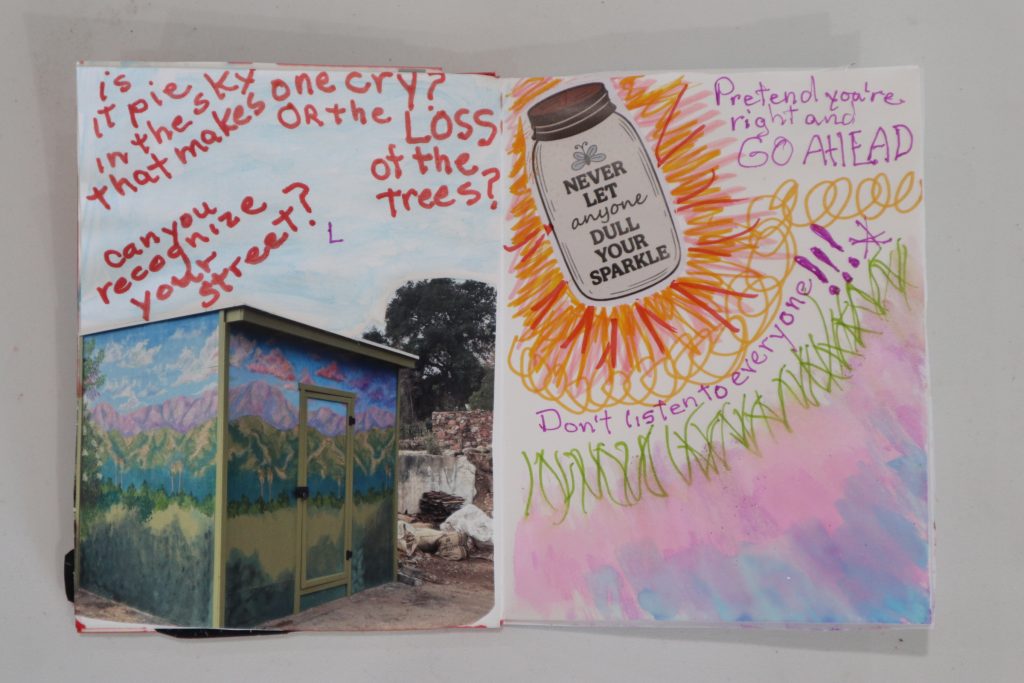 is
it pie
in the sky
that makes
one cry?
OR the LOSS
of the
trees?
can you
recognize
your
street?
L
NEVER
LET
anyone
DULL
YOUR
SPARKLE
Pretend you're
right and
GO AHEAD
Don't listen to everyone!!!